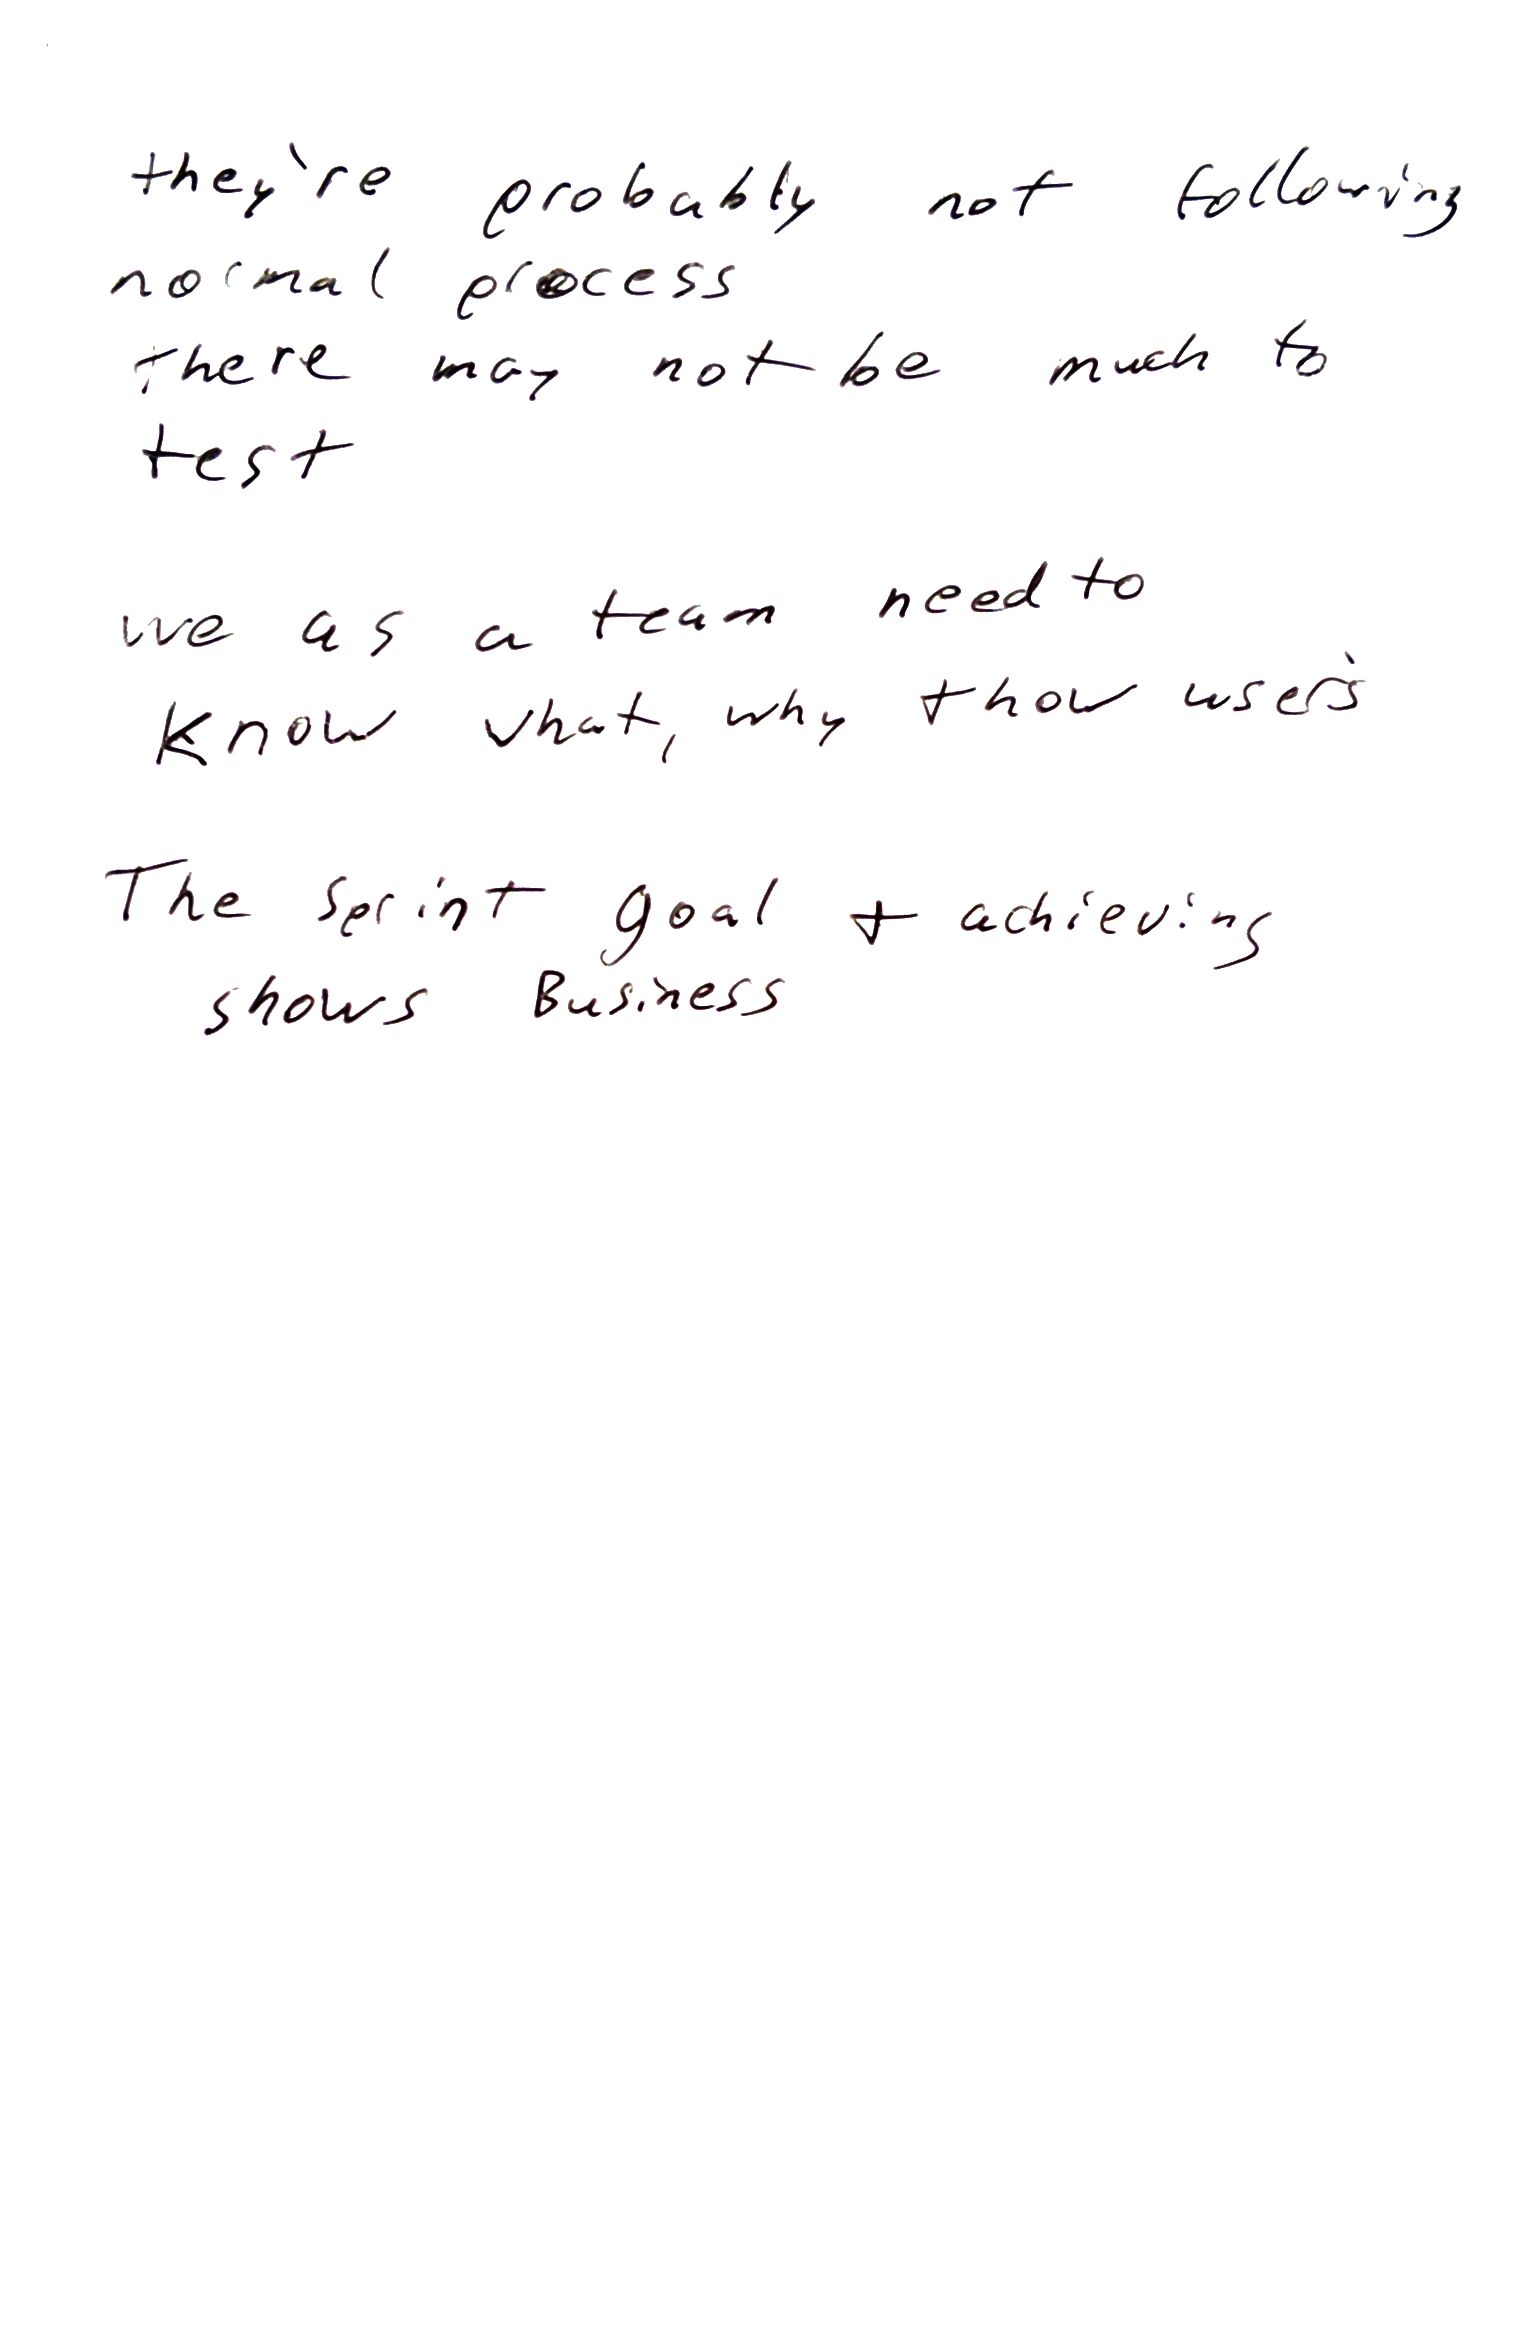 they're probably not following
normal process
There may not be much to
test
we as a team need to
know what, why + how user's
The sprint goal + achieving
shows Business